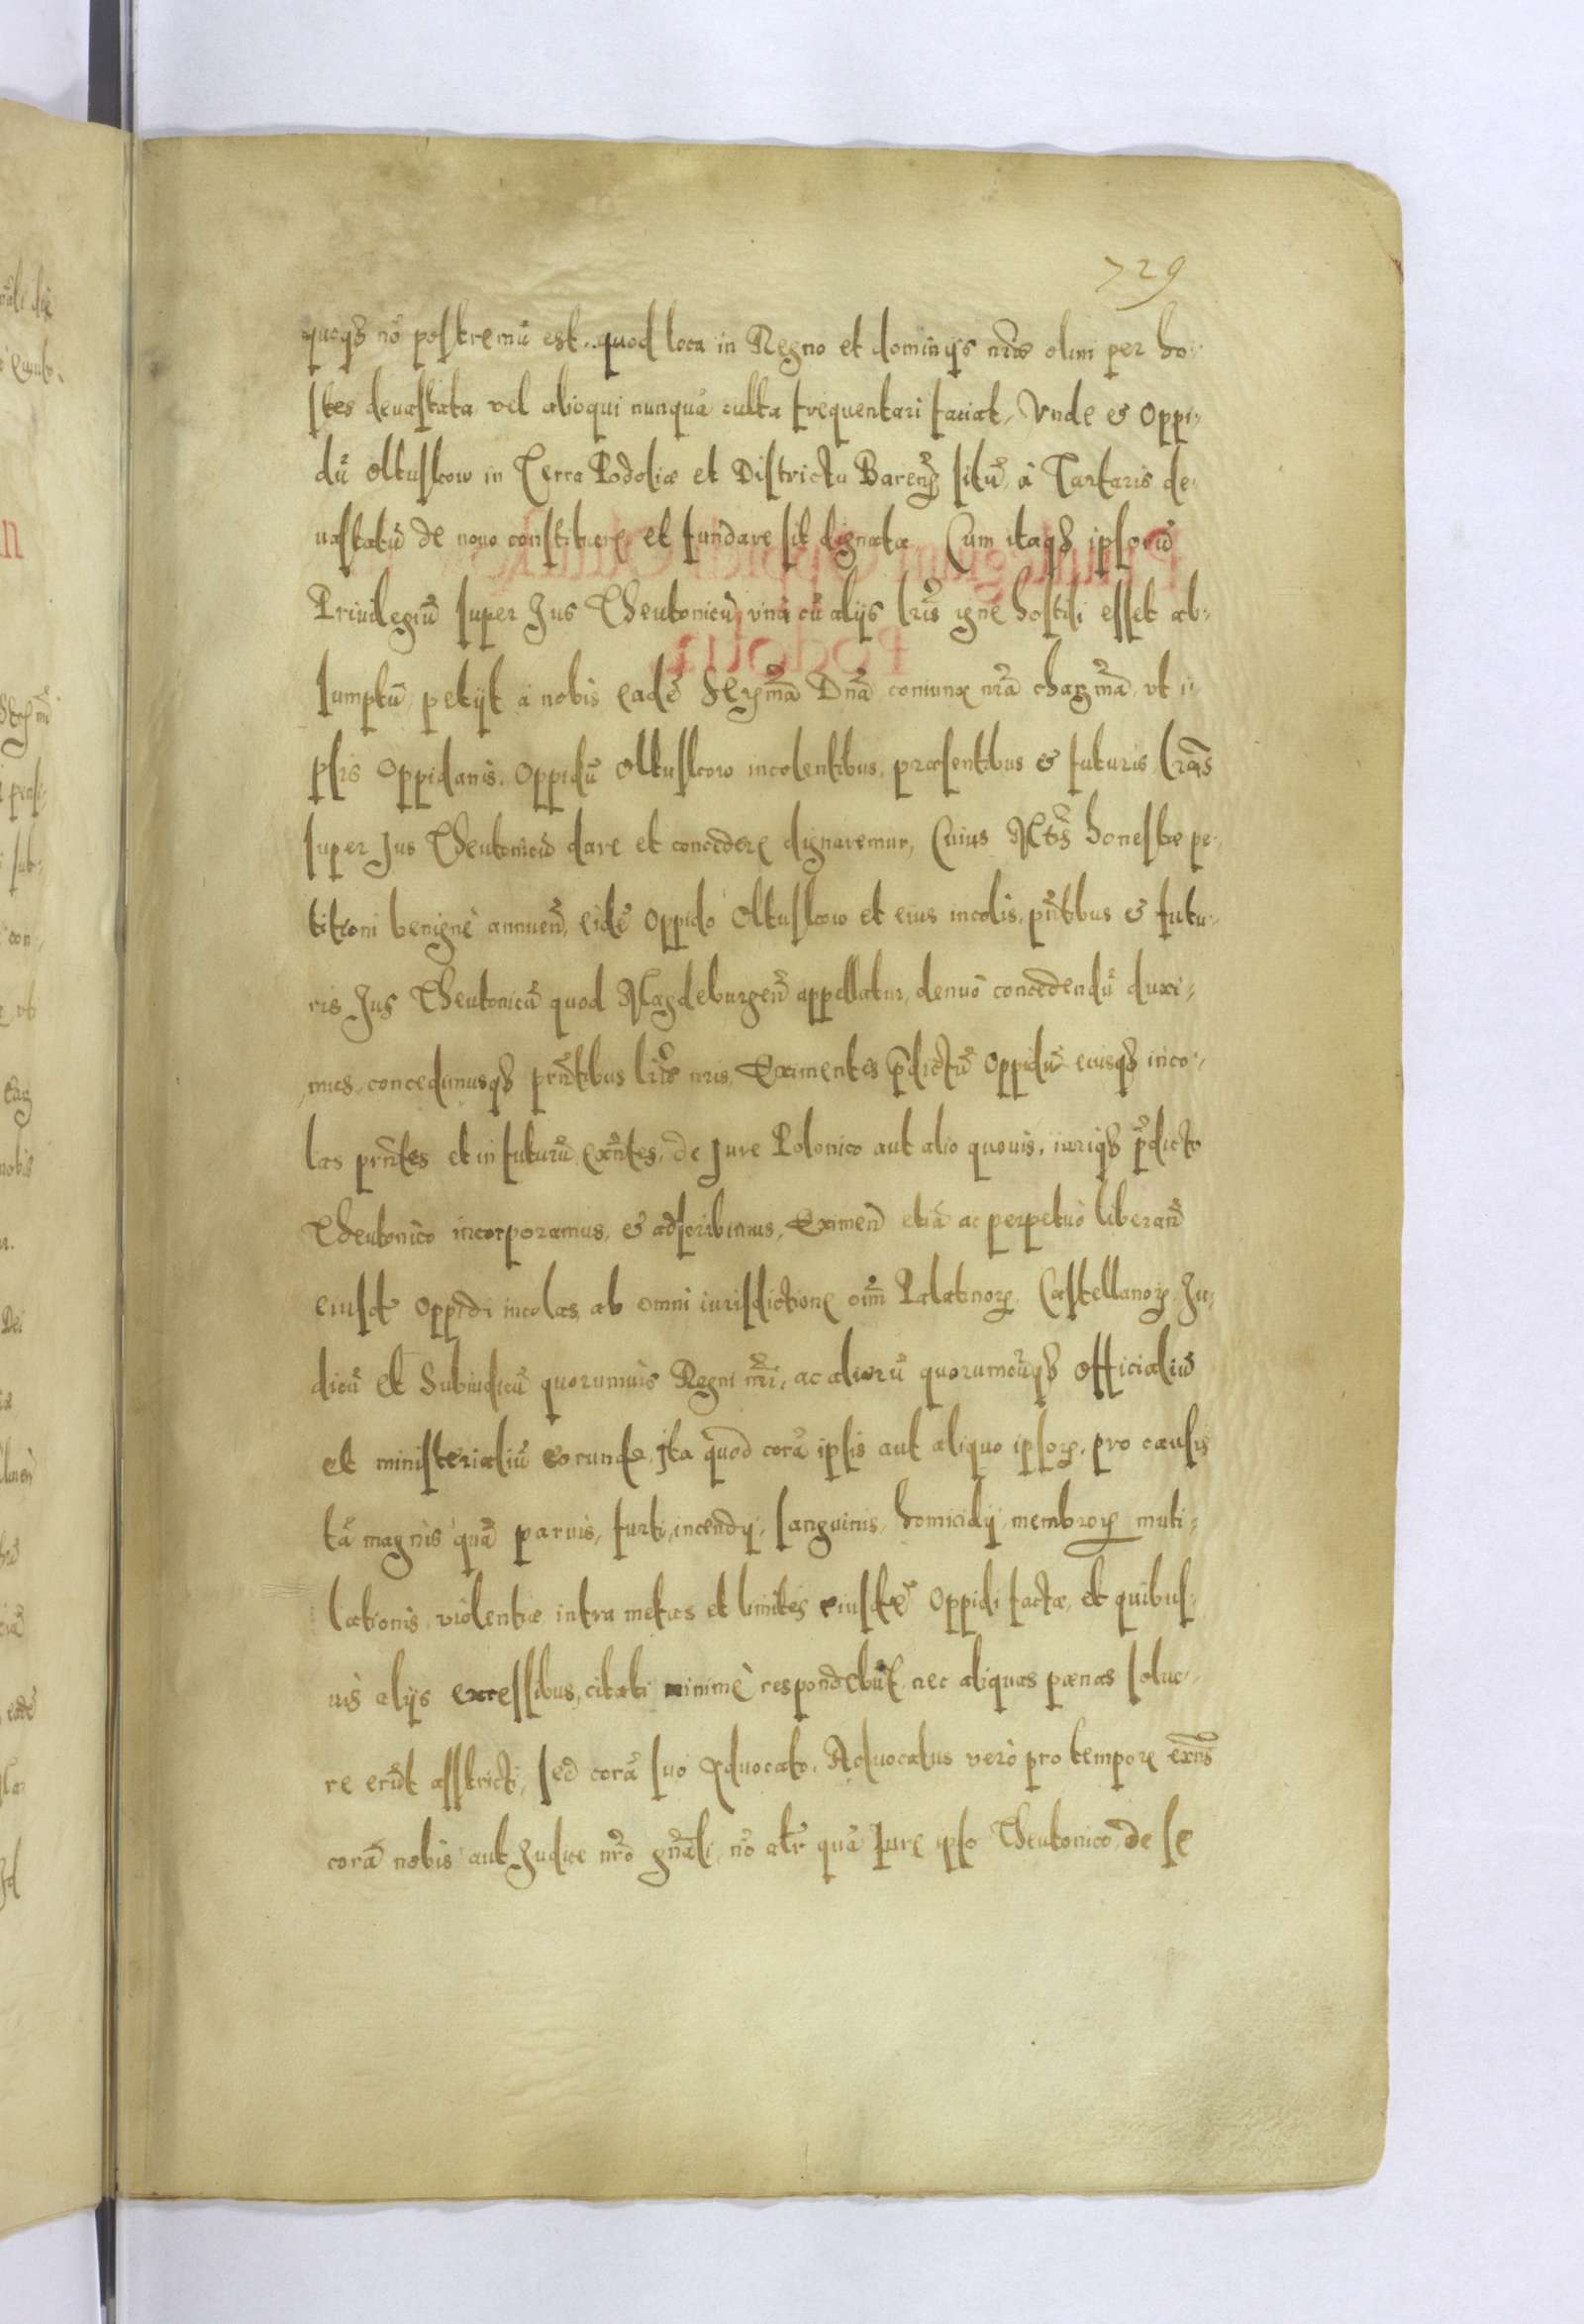 729
quoqȝ nō postremū est, quod loca in Regno et dominijs nr̄is olim per ho-
stes deuastata vel alioqui nunquā culta frequentari faciat, Vnde & Oppi-
dū Oltuschow in Terra Podoliæ et Districtu Bareñ sitū, à Tartaris de-
uastatū de nouo constituere et fundare sit dignata. Cum itaqȝ ipsorū
Priuilegiū super Jus Theutonicū vnà cū alijs lr̄is igne hostili esset ab-
sumptū, petijt à nobis eadē Ser̄ma Dn̄a coniunx nr̄a char̄ma, vt i-
psis Oppidanis, Oppidū Oltuschow incolentibus, præsentibus & futuris, lr̄as
super Jus Theutonicū dare et concedere dignaremur, Cuius Mt̄is honestæ pe-
titioni benignè annueñ, eidē Oppido Oltuschow et eius incolis, pn̄tibus & futu-
ris Jus Theutonicū quod Magdeburgeñ appellatur, denuò concedendū duxi-
mus, concedimusqȝ prn̄tibus lr̄is nr̄is, Eximentes p̄dictū Oppidū eiusqȝ inco-
las prn̄tes et in futurū exn̄tes, de Jure Polonico aut alio quouis, iuriqȝ p̄dicto
Theutonico incorporamus, & adscribimus, Eximeñ etiā ac perpetuò liberañ
eiusdē Oppidi incolas, ab omni iurisdictione oīm Palatinorꝫ, Castellanorꝫ, Ju-
dicū et Subiudicū quorumuis Regni nr̄i, ac aliorū quorumcūqȝ Officialiū
et ministerialiū eorundē, Ita quod corā ipsis aut aliquo ipsorꝫ, pro causis
tā magnis quā paruis, furti, incendij, sanguinis, homicidij, membrorꝫ muti-
lationis, violentiæ intra metas et limites eiusdē Oppidi factæ, et quibus-
uis alijs excessibus, citati minimè respondebūt, nec aliquas pænas solue-
re erūt asstricti, sed corā suo Aduocato, Aduocatus verò pro tempore exn̄s
corā nobis aut Judice nr̄o gn̄ali, nō atr̄ quā Jure ipso Theutonico, de se